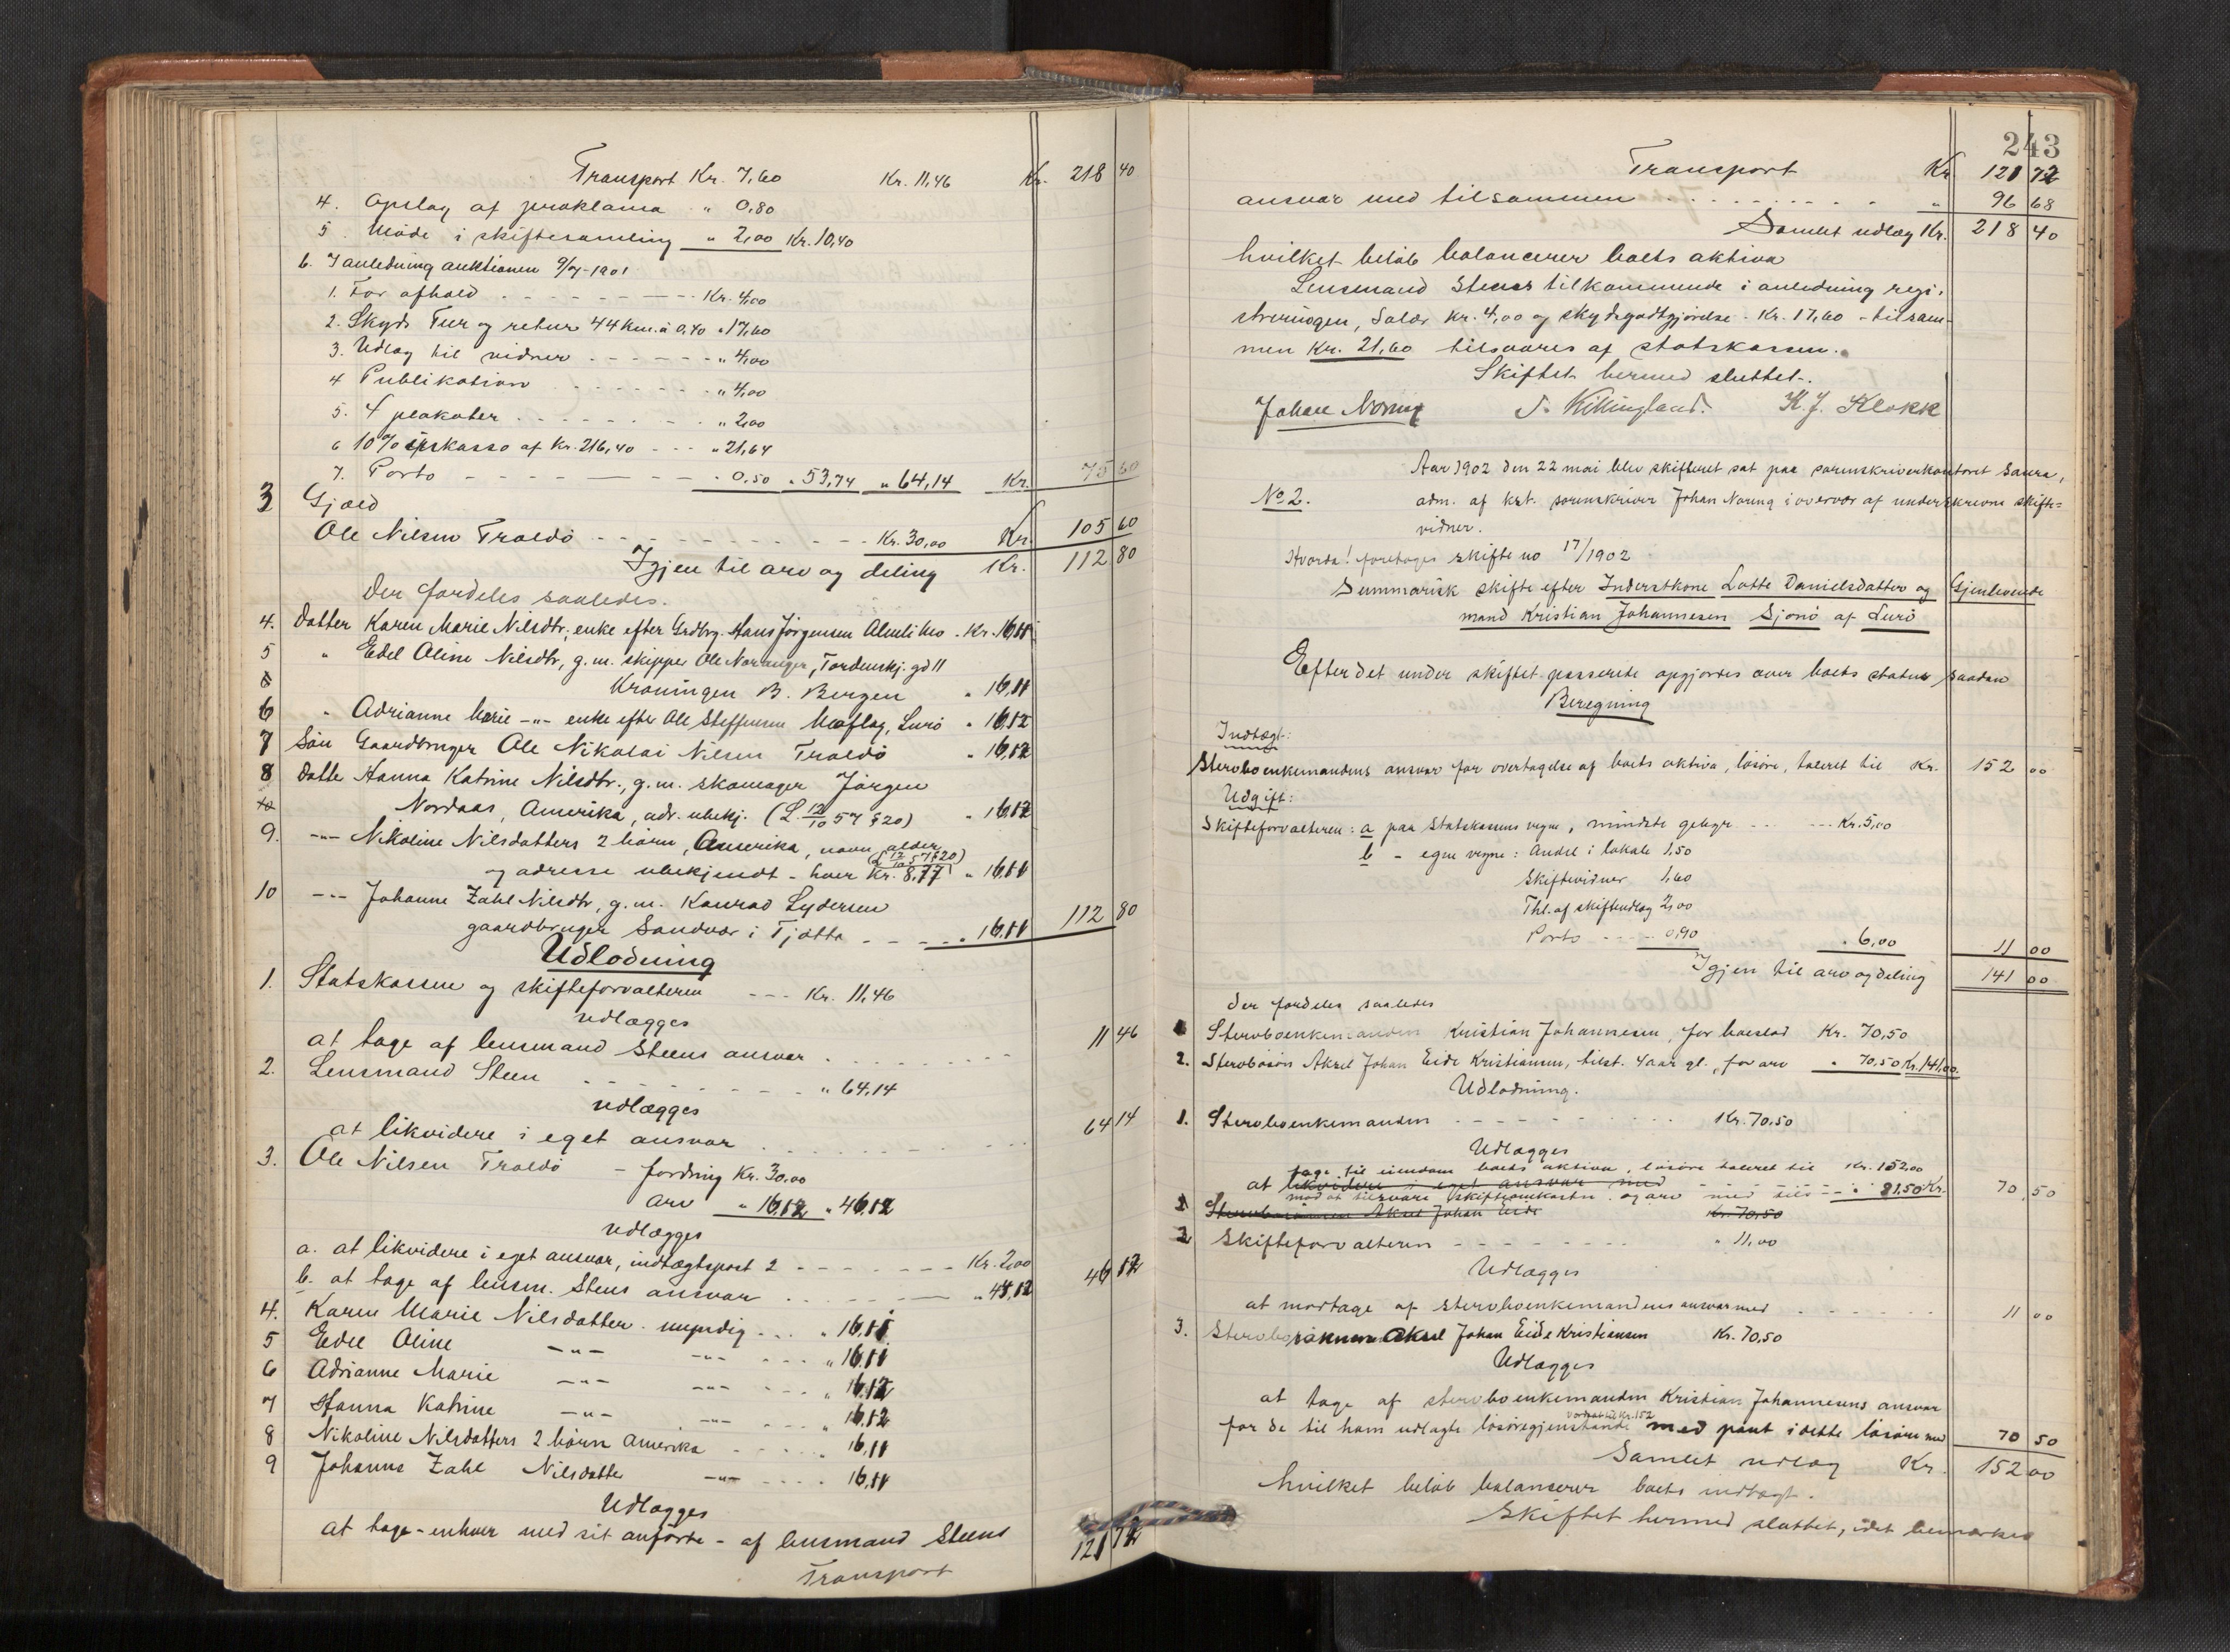 Transport Kr. 7,60 Kr. 11,46 Kr. 218 40
4. Opslag af proklama " 0,80
5. Møde i skiftesamling " 2,00 Kr. 10,40
6. I anledning auktionen 9/7-1901
1. For afhold Kr. 4,00
2. Skyds Tur og retur 44 km. à 0,40 " 17,60
3. Udlæg til vidner " 4,00
4 Publikation " 4,00
5. 4 plakater " 2,00
6 10% inkasso af Kr. 216,40 " 21,64
7. Porto " 0,50 " 53,74 " 64,14 Kr. 75 60
3 Gjæld
Ole Nilsen Traldö Kr. 30,00 Kr. 105 60
Igjen til arv og deling Kr. 112 80
der fordeles saaledes.
4. Datter Karen Marie Nilsdtr, enke efter Grdbrg. Hans Jörgensen Kr. 16,11
5 " Edel Oline Nilsdtr, g.m. skipper Ole Tordenskj. gd 11
Kroningen B. Bergen " 16,11
6 " Adrianne Marie -"- enke efter Ole Steffensen Maaflag, Lurö " 16,12
7 Sön Gaardbruger Ole Nikolai Nilsen Traldö " 16,12
8 datte Hanna Katrine Nilsdtr., g.m. skomager Jörgen
Nordaas, Amerika, adr. ubekj. (L. 12/10 57 § 20) " 16,12
9. -"- Nikoline Nilsdatters 2 börn, Amerika, navn, alder
(L 12/10 57 § 20)
og adresse ubekjendt - hver Kr. 8,77 " 16,11
10 -"- Johanne Zahl Nilsdtr, g.m. Konrad Lydersen
gaardbruger Sandvær i Tjötta " 16,11 112 80
Udlodning
1. Statskassen og skifteforvalteren Kr. 11,46
udlægges
at tage af lensmand Steens ansvar 11 46
2. Lensmand Steen " 64,14
udlægges
at likvidere i eget ansvar 64 14
3. Ole Nilsen Traldö - fordring Kr. 30,00
arv " 16,12 " 46,12
udlægges
a. at likvidere i eget ansvar, indtægtspost 2 Kr. 2,00
b. at tage af lensm. Steens ansvar " 44,12 46 12
4. Karen Marie Nilsdatter myndig " 16,11
5 Edel Oline -"- -"- " 16,11
6 Adrianne Marie -"- -"- " 16,12
7 Hanna Katrine -"- -"- " 16,12
8 Nikoline Nilsdatters 2 börn Amerika " 16,11
9 Johanne Zahl Nilsdatter -"- " 16,11
Udlægges
at tage - enhver med sit anförte - af lensmand Steens
Transport 121 72
243
Transport Kr 121 72
ansvar med tilsammen " 96 68
Samlet udlæg Kr. 218 40
hvilket belöb balancerer boets aktiva
Lensmand Steens tilkommende i anledning regi-
streringen, Salær Kr. 4,00 og skydsgodtgjörelse Kr. 17,60 - tilsam-
men Kr. 21,60 tilsvares af statskassen.
Skiftet hermed sluttet.
Johan Noring S. Killingland. K.J. Klokk
No 2. Aar 1902 den 22 mai blev skifteret sat paa sorenskriverkontoret Sauva,
adm. af kst. sorenskriver Johan Noring i overvær af underskrevne skifte=
vidner.
Hvorda! foretoges skifte no 17/1902
Summarisk skifte efter Inderstkone Lotte Danielsdatter og Gjenlevende
mand Kristian Johannesen Sjonö af Lurö
Efter det under skiftet passerede opgjordes over boets status saadan
Beregning
Indtægt:
Sterboenkemandens ansvar for overtagelse af boets aktiva, lösöre, taxeret til Kr. 152 00
Udgift:
Skifteforvalteren: a paa Statskassens vegne, mindste gebyr Kr. 5,00
b - egne vegne: Andel i lokale 1,50
Skiftevidner 1,60
Thl. af skifteudlæg 2,00
Porto 0,90 " 6,00 11 00
Igjen til arv og deling 141 00
der fordeles saaledes
1 Sterboenkemanden Kristian Johannesen, for boeslod Kr. 70,50
2. Sterbosön Aksel Johan Eide Kristiansen, tilst. 4 aar gl., for arv " 70,50 Kr. 141,00
Udlodning.
1. Sterboenkemanden Kr. 70,50
Udlægges
tage til eiendom boets aktiva, lösöre taxeret til Kr. 152,00
at likvidere i eget ansvar med
mod at tilsvare skifteomkostn. og arv med tils " 81,50 Kr. 70,50
2 Sterbosönnen Aksel Johan Eide Kr. 70,50
2 Skifteforvalteren " 11,00
Udlægges
at modtage af sterboenkemandens ansvar med 11 00
3. Sterbosönnen Aksel Johan Eide Kristiansen Kr. 70,50
Udlægges
at tage af sterboenkemanden Kristian Johannesens ansvar
for de til ham udlagte lösöregjenstande med pant i dette lösöre med 70 50
Samlet udlæg Kr. 152 00
hvilket belöb balanserer boets indtægt.
Skiftet hermed sluttet, idet bemærkes